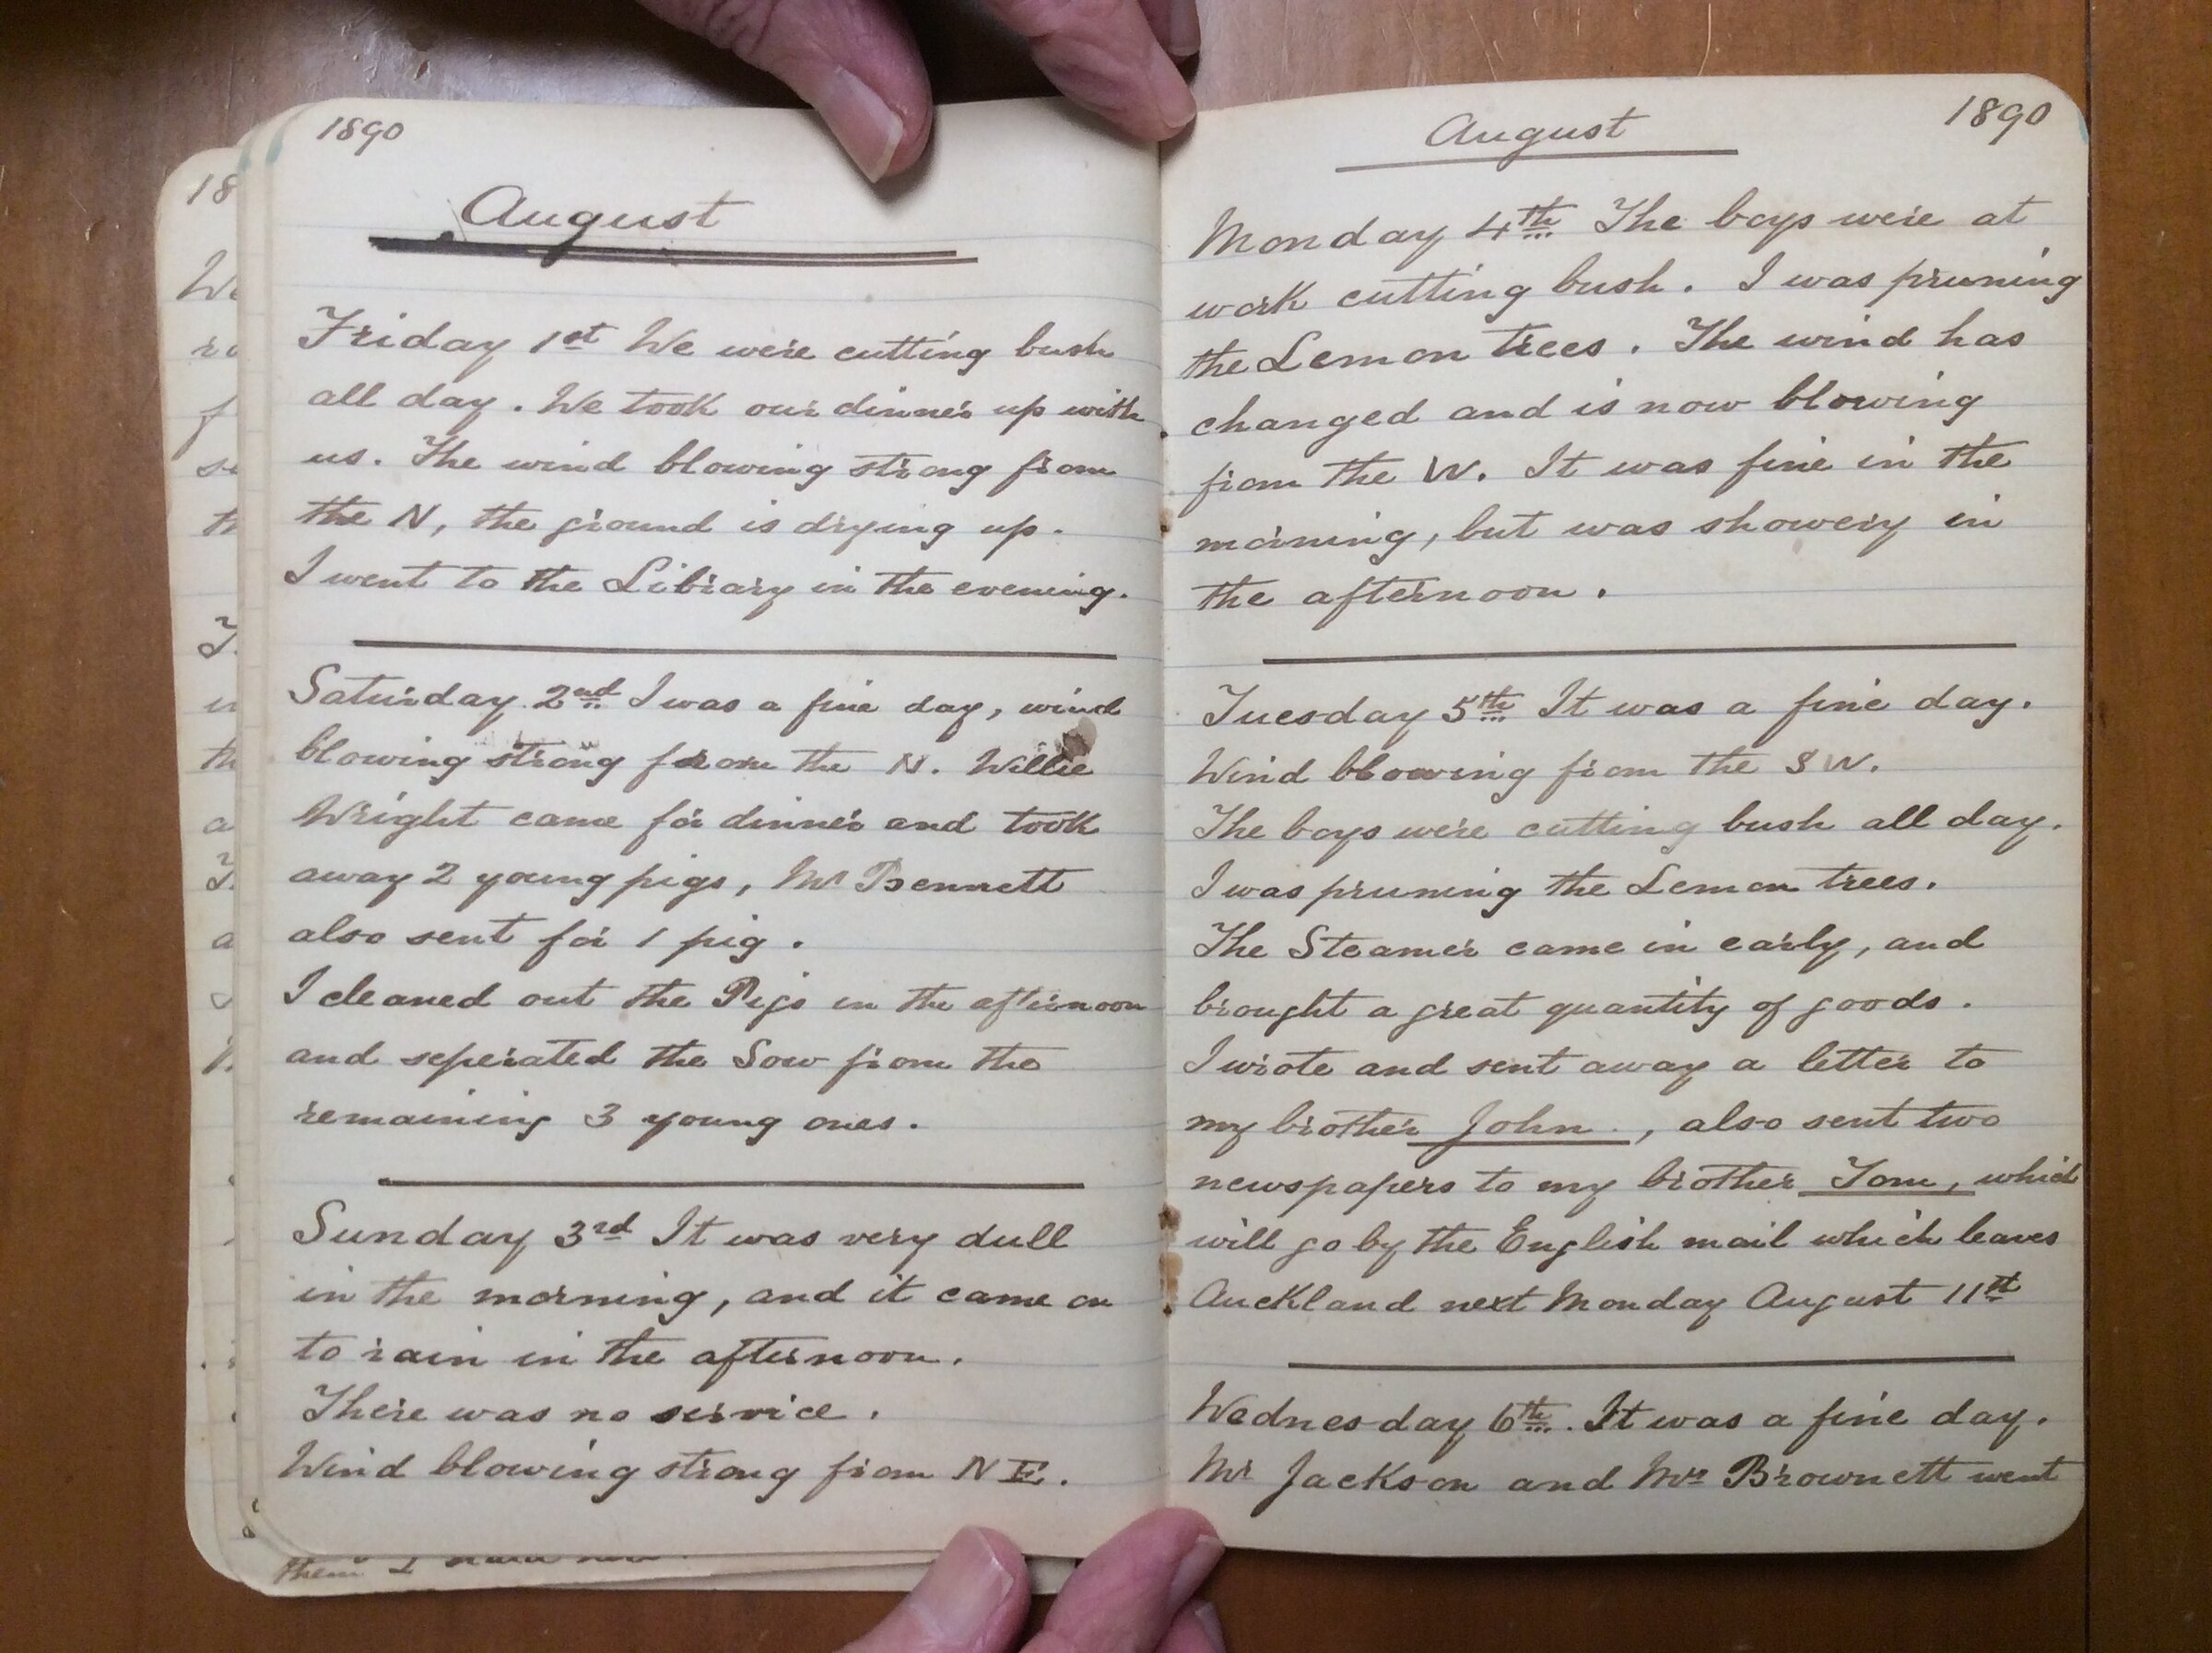 1890
August
Friday 1st We were cutting bush
all day. We took our dinner up with
us. The wind blowing strong from
the N, the ground is drying up.
I went to the Library in the evening.
Saturday 2nd I was a fine day, wind
blowing strong from the N. Willie
Wright came for dinner and took
away 2 young pigs, Mr Bennett
also sent for 1 pig.
I cleaned out the Pigs in the afternoon
and seperated the Sow from the
remaining 3 young ones.
Sunday 3rd It was very dull
in the morning, and it came on
to rain in the afternoon.
There was no service.
Wind blowing strong from NE.
August 1890
Monday 4th The boys were at
work cutting bush. I was pruning
the Lemon trees. The wind has
changed and is now blowing
from the W. It was fine in the
morning, but was showery in
the afternoon.
Tuesday 5th It was a fine day.
Wind blowing from the SW.
The boys were cutting bush all day.
I was pruning the Lemon trees.
The Steamer came in early, and
brought a great quantity of goods.
I wrote and sent away a letter to
my brother John, also sent two
newspapers to my brother Tom, which
will go by the English mail which leaves
Auckland next Monday August 11st
Wednesday 6th. It was a fine day.
Mr Jackson and Mrs Brownett went